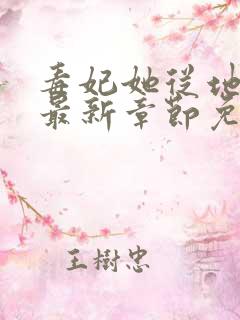 毒妃她从地
最新章節免
王樹忠